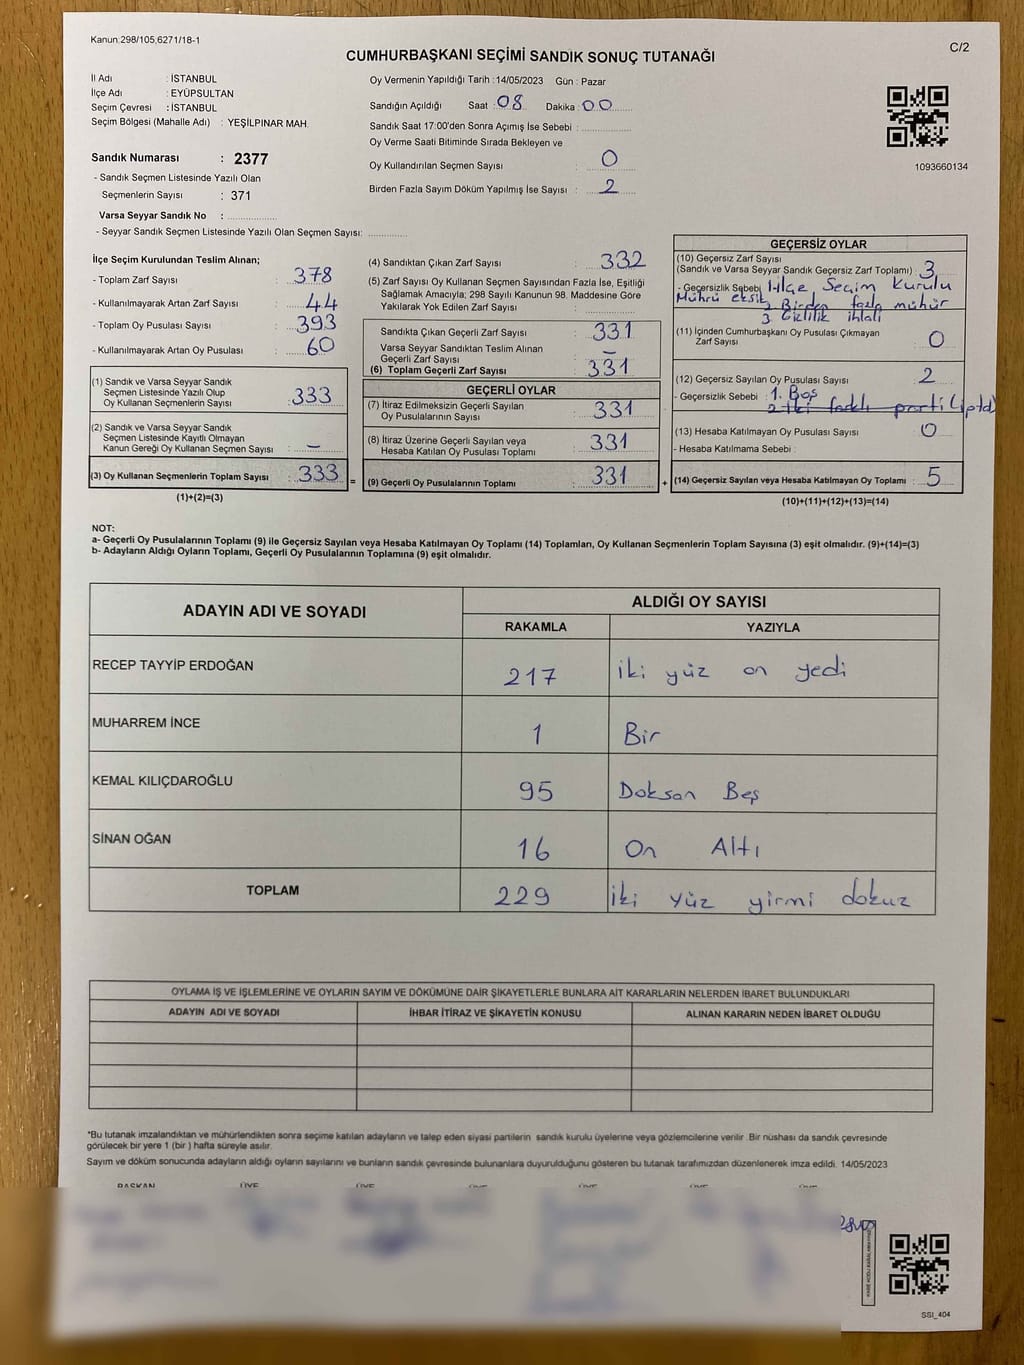 Kanun:298/105,6271/18-1
C/2
CUMHURBAŞKANI SEÇİMİ SANDIK SONUÇ TUTANAĞI
İl Adı : İSTANBUL
İlçe Adı : EYÜPSULTAN
Seçim Çevresi : İSTANBUL
Seçim Bölgesi (Mahalle Adı) : YEŞİLPINAR MAH.
Sandık Numarası : 2377
- Sandık Seçmen Listesinde Yazılı Olan
Seçmenlerin Sayısı : 371
Varsa Seyyar Sandık No :
- Seyyar Sandık Seçmen Listesinde Yazılı Olan Seçmen Sayısı:
Oy Vermenin Yapıldığı Tarih :14/05/2023 Gün : Pazar
Sandığın Açıldığı Saat : 08 Dakika : 00
Sandık Saat 17:00'den Sonra Açımış İse Sebebi :
Oy Verme Saati Bitiminde Sırada Bekleyen ve
Oy Kullandırılan Seçmen Sayısı : 0
Birden Fazla Sayım Döküm Yapılmış İse Sayısı : 2
1093660134
İlçe Seçim Kurulundan Teslim Alınan;
- Toplam Zarf Sayısı : 378
- Kullanılmayarak Artan Zarf Sayısı : 44
- Toplam Oy Pusulası Sayısı : 393
- Kullanılmayarak Artan Oy Pusulası : 60
(1) Sandık ve Varsa Seyyar Sandık
Seçmen Listesinde Yazılı Olup
Oy Kullanan Seçmenlerin Sayısı : 333
(2) Sandık ve Varsa Seyyar Sandık
Seçmen Listesinde Kayıtlı Olmayan
Kanun Gereği Oy Kullanan Seçmen Sayısı : –
(3) Oy Kullanan Seçmenlerin Toplam Sayısı : 333
(1)+(2)=(3)
=
(4) Sandıktan Çıkan Zarf Sayısı : 332
(5) Zarf Sayısı Oy Kullanan Seçmen Sayısından Fazla İse, Eşitliği
Sağlamak Amacıyla; 298 Sayılı Kanunun 98. Maddesine Göre
Yakılarak Yok Edilen Zarf Sayısı :
Sandıkta Çıkan Geçerli Zarf Sayısı : 331
Varsa Seyyar Sandıktan Teslim Alınan
Geçerli Zarf Sayısı : –
(6) Toplam Geçerli Zarf Sayısı : 331
GEÇERLİ OYLAR
(7) İtiraz Edilmeksizin Geçerli Sayılan
Oy Pusulalarının Sayısı : 331
(8) İtiraz Üzerine Geçerli Sayılan veya
Hesaba Katılan Oy Pusulası Toplamı : 331
(9) Geçerli Oy Pusulalarının Toplamı : 331
+
GEÇERSİZ OYLAR
(10) Geçersiz Zarf Sayısı
(Sandık ve Varsa Seyyar Sandık Geçersiz Zarf Toplamı) : 3
- Geçersizlik Sebebi İlçe Seçim Kurulu
Mührü eksik 2 Birden fazla mühür
3 Gizlilik ihlali
(11) İçinden Cumhurbaşkanı Oy Pusulası Çıkmayan
Zarf Sayısı : 0
(12) Geçersiz Sayılan Oy Pusulası Sayısı : 2
- Geçersizlik Sebebi : 1. Boş
2 İki farklı parti (iptal)
(13) Hesaba Katılmayan Oy Pusulası Sayısı : 0
- Hesaba Katılmama Sebebi :
(14) Geçersiz Sayılan veya Hesaba Katılmayan Oy Toplamı : 5
(10)+(11)+(12)+(13)=(14)
NOT:
a- Geçerli Oy Pusulalarının Toplamı (9) ile Geçersiz Sayılan veya Hesaba Katılmayan Oy Toplamı (14) Toplamları, Oy Kullanan Seçmenlerin Toplam Sayısına (3) eşit olmalıdır. (9)+(14)=(3)
b- Adayların Aldığı Oyların Toplamı, Geçerli Oy Pusulalarının Toplamına (9) eşit olmalıdır.
ADAYIN ADI VE SOYADI
ALDIĞI OY SAYISI
RAKAMLA YAZIYLA
RECEP TAYYİP ERDOĞAN 217 iki yüz on yedi
MUHARREM İNCE 1 Bir
KEMAL KILIÇDAROĞLU 95 Doksan Beş
SİNAN OĞAN 16 On Altı
TOPLAM 229 iki yüz yirmi dokuz
OYLAMA İŞ VE İŞLEMLERİNE VE OYLARIN SAYIM VE DÖKÜMÜNE DAİR ŞİKAYETLERLE BUNLARA AİT KARARLARIN NELERDEN İBARET BULUNDUKLARI
ADAYIN ADI VE SOYADI İHBAR İTİRAZ VE ŞİKAYETİN KONUSU ALINAN KARARIN NEDEN İBARET OLDUĞU
*Bu tutanak imzalandıktan ve mühürlendikten sonra seçime katılan adayların ve talep eden siyasi partilerin sandık kurulu üyelerine veya gözlemcilerine verilir .Bir nüshası da sandık çevresinde
görülecek bir yere 1 (bir ) hafta süreyle asılır.
Sayım ve döküm sonucunda adayların aldığı oyların sayılarını ve bunların sandık çevresinde bulunanlara duyurulduğunu gösteren bu tutanak tarafımızdan düzenlenerek imza edildi. 14/05/2023
BAŞKAN ÜYE ÜYE ÜYE ÜYE ÜYE ÜYE
SSI_404